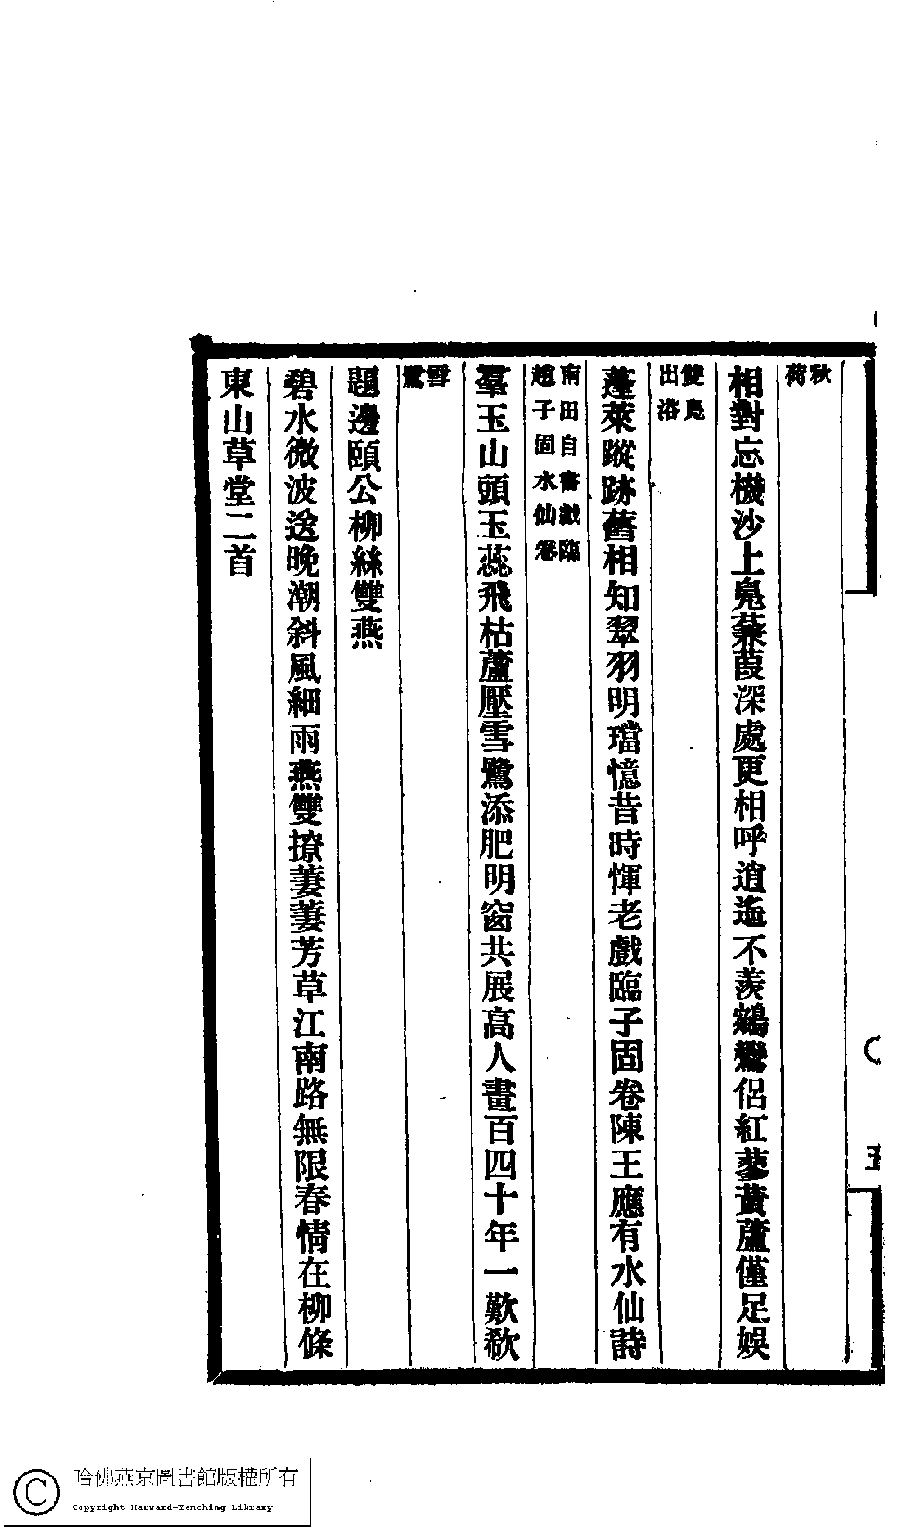 秋
荷
相對忘機沙上鳧蒹葭深處更相呼逍遙不羨鵷鸞侶紅蓼黃蘆僅足娛
雙鳧
出浴
蓬萊蹤跡舊相知翠羽明璫憶昔時惲老戲臨子固卷陳王應有水仙詩
南田自書戲臨
趙子固水仙卷
羣玉山頭玉蕊飛枯蘆壓雪鷺添肥明窗共展高人畫百四十年一歎欷
雪
鷺
題邊頤公柳絲雙燕
碧水微波送晚潮斜風細雨燕雙撩萋萋芳草江南路無限春情在柳條
東山草堂二首
五
哈佛燕京圖書館版權所有
Copyright Harvard-Yenching Library